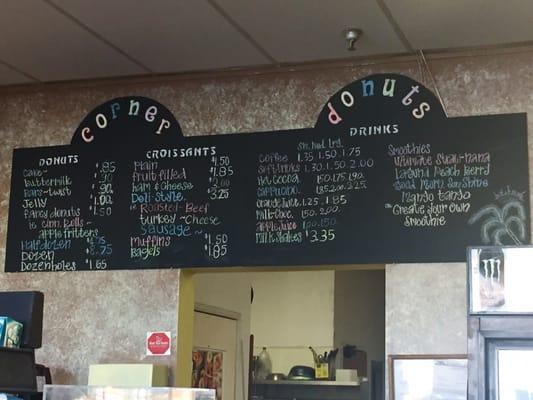 corner
donuts
DONUTS
Cake~ .85
buttermilk .90
Bars~twist .90
Jelly 1.00
fancy donuts 1.50
& cinn.rolls
apple fritters
Half dozen
Dozen 8.75
Dozen holes $1.65
CROISSANTS
Plain $1.50
fruit filled $1.85
ham & cheese
Deli-style. $3.25
Roasted Beef
turkey~cheese
Sausage~
Muffins $1.50
Bagels $1.85
DRINKS
Sm. Med. Lrg.
Coffee 1.35 1.50 1.75
Soft drinks 1.30 1.50 2.00
Hot Cocoa 1.50.1.75.1.90.
Cappucino.
Orange Juice 1.25 1.85
Milk-Choc. 1.50. 2.00.
apple juice
Milk shakes $3.35
Smoothies
Ultimate
Laguna Beach Berry
Mango tango
"Create your own
Smoothie